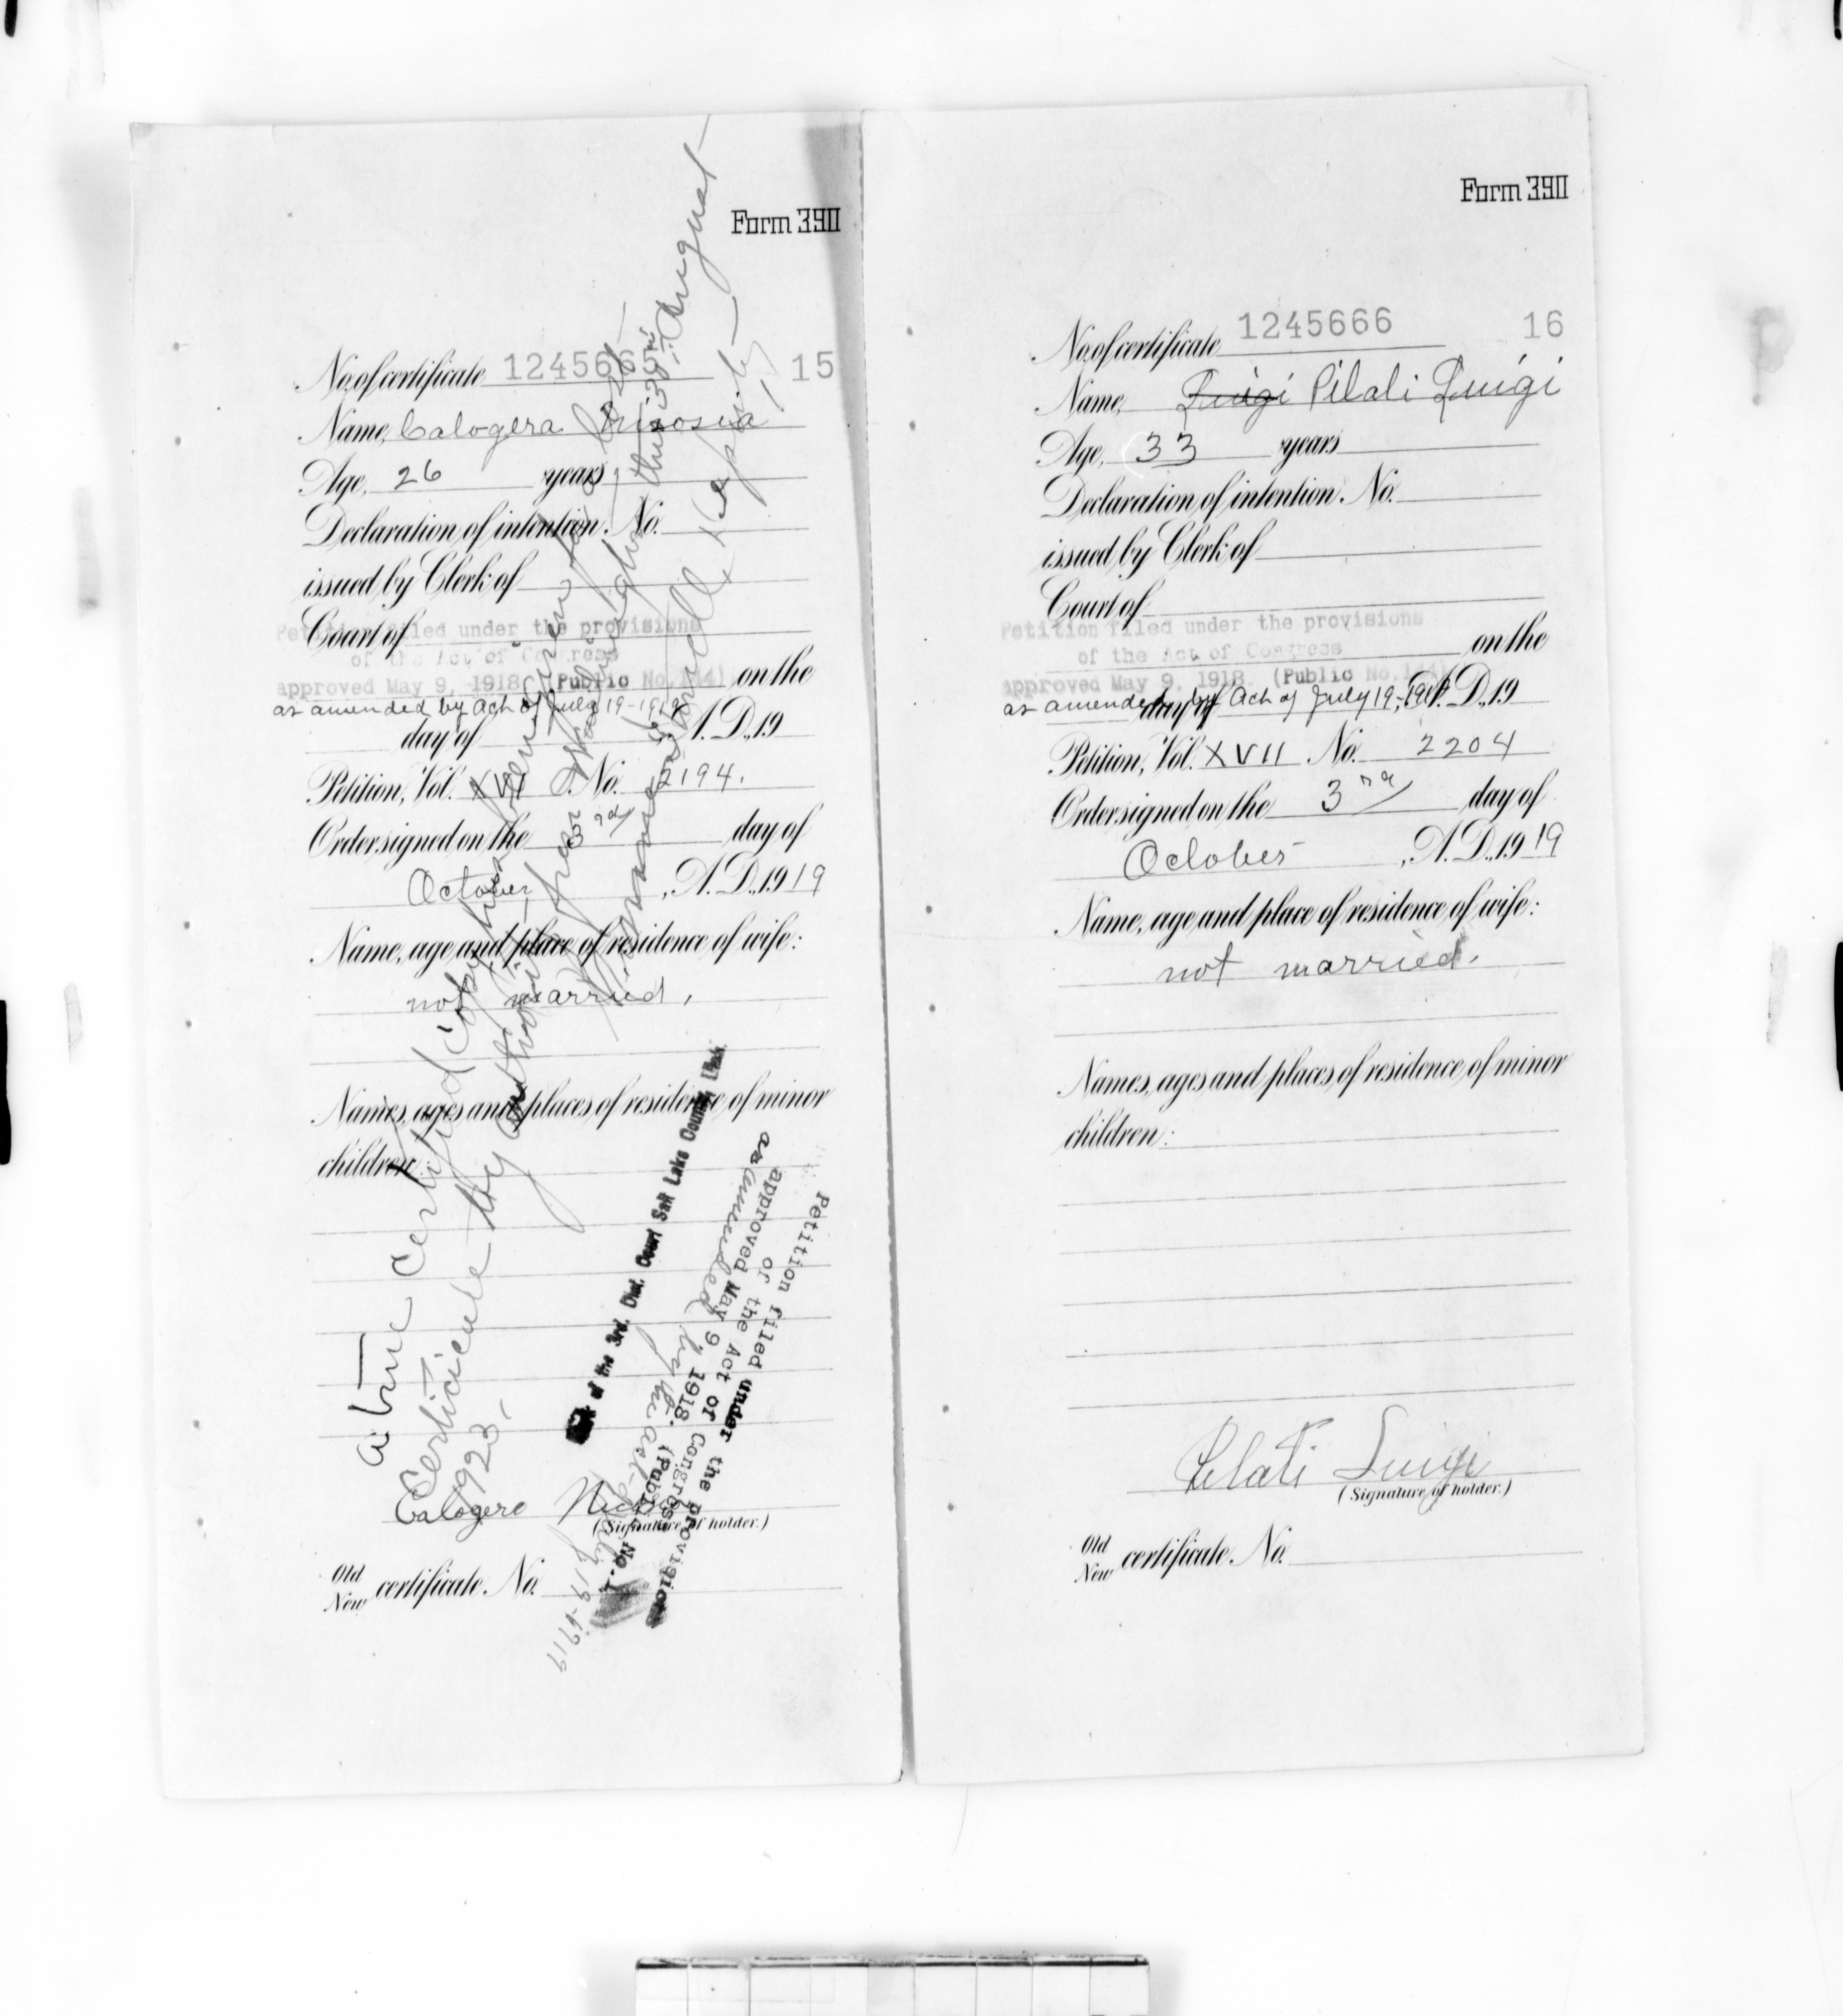 Form 390
No. of certificate 1245665 15
Name, Calogera
Age, 26 years
Declaration of intention, No.
issued by Clerk of
Court of
Petition filed under the provisions
of the Act of Congress
approved May 9, 1918. (Public No. 144) on the
as amended by Act of July 19-1919
day of , A.D., 19
Petition, Vol. XVII No. 2194.
Order signed on the 3rd day of
October , A.D., 1919
Name, age and place of residence of wife:
not married,
Names, ages and places of residence of minor
children:
Calogero
(Signature of holder.)
Old
New certificate No.
a true certified copy has been given
Certificate by authority from Washington this 30th August
1923,
of the 3rd. Dist. Court Salt Lake County Utah
Petition filed under the provisions
of the Act of Congress
approved May 9 1918. (Public No. 1
as amended by the act July 19-1919
Form 390
No. of certificate 1245666 16
Name, Luigi Pilati Luigi
Age, 33 years
Declaration of intention, No.
issued by Clerk of
Court of
Petition filed under the provisions
of the Act of Congress on the
approved May 9, 1918. (Public No. 144)
as amended by Act of July 19, 1919
day of A.D., 19
Petition, Vol. XVII No. 2204
Order signed on the 3rd day of
October , A.D., 1919
Name, age and place of residence of wife:
not married.
Names, ages and places of residence of minor
children:
Pilati Luigi
(Signature of holder.)
Old
New certificate No.